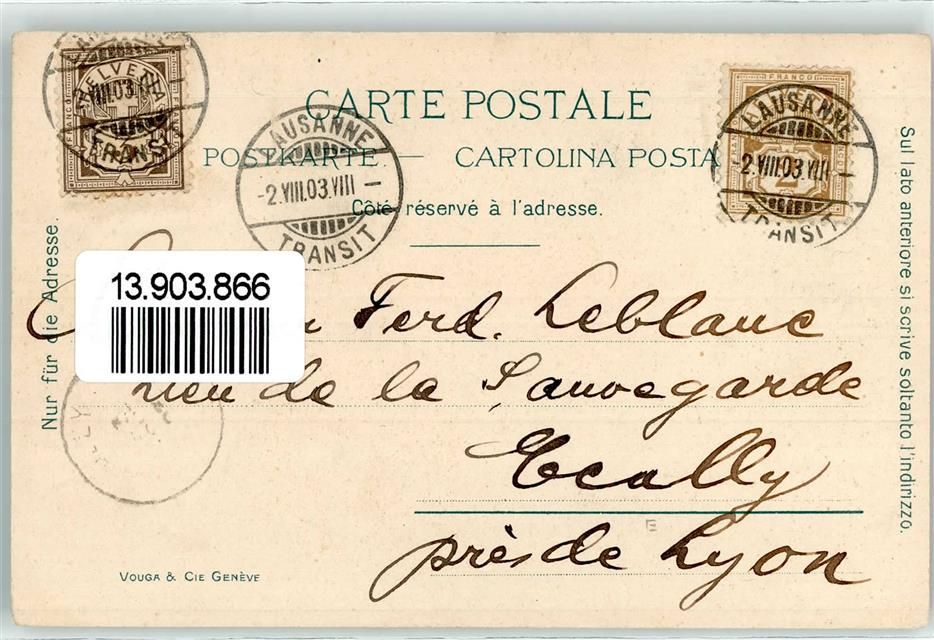 CARTE POSTALE
POSTKARTE — CARTOLINA POSTA
Côté réservé à l'adresse.
Nur für die Adresse
Sul lato anteriore si scrive soltanto l'indirizzo.
HELVETIA
VIII.03.
TRANSIT
LAUSANNE
-2.VIII.03.VIII-
TRANSIT
FRANCO
LAUSANNE
-2.VIII.03.VIII-
2
TRANSIT
13.903.866
Ferd. Leblanc
de la Sauvegarde
Ecully
près de Lyon
VOUGA & CIE GENÈVE